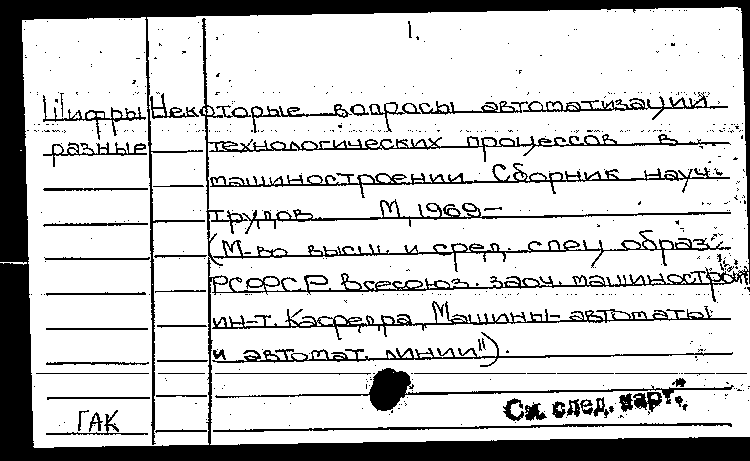 1.
Шифры Некоторые вопросы автоматизации
разные технологических процессов в
машиностроении. Сборник науч.
трудов. М, 1969-
(М-во высш. и сред. спец. образ.
РСФСР. Всесоюз. заоч. машиностроит
ин-т. Кафедра "Машины-автоматы
и автомат. линии").
См. след. карт.
ГАК